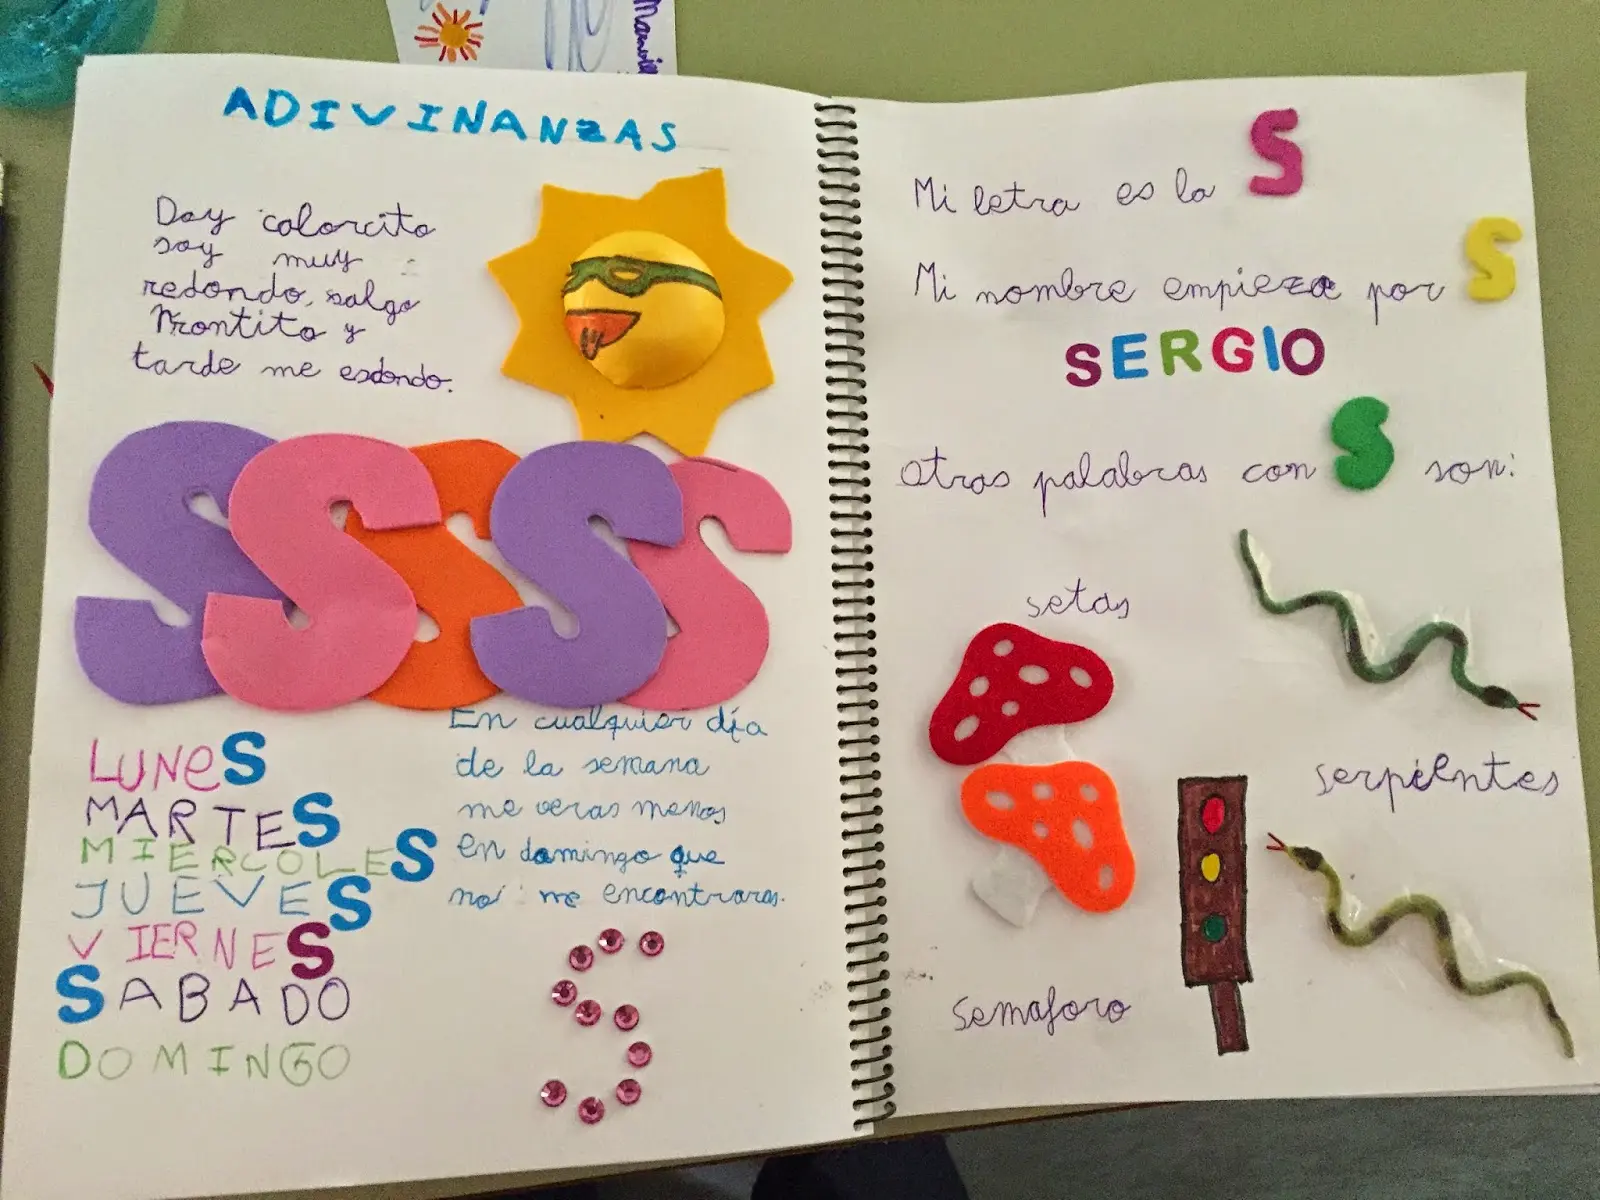 Manuel
ADIVINANZAS
Doy calorcito
soy muy
redondo, salgo
Prontito y
tarde me escondo.
SSSSS
LUNES
MARTES
MIERCOLES
JUEVES
VIERNES
SABADO
DOMINGO
En cualquier día
de la semana
me veras menos
en domingo que
no me encontraras.
S
Mi letra es la S
Mi nombre empieza por S
SERGIO
otras palabras con S son:
setas
serpientes
semaforo